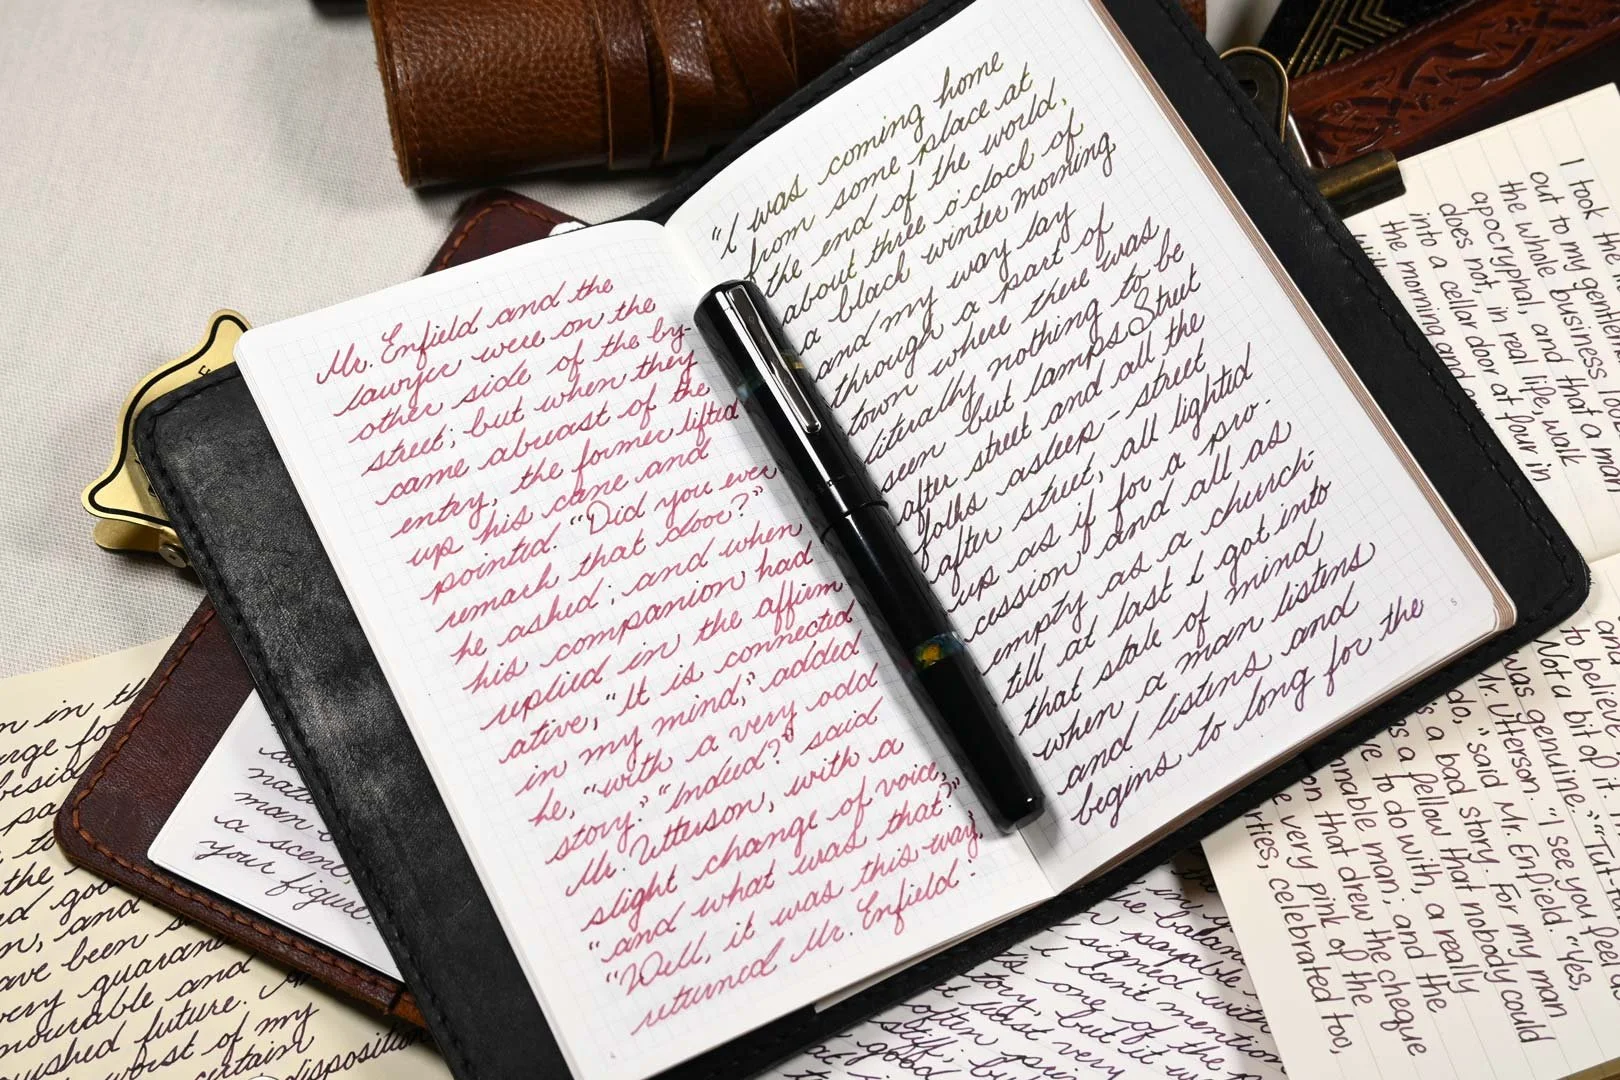 Mr. Enfield and the
lawyer were on the
other side of the by-
street; but when they
came abreast of the
entry, the former lifted
up his cane and
pointed. "Did you ever
remark that door?"
he asked; and when
his companion had
replied in the affirm
ative, "It is connected
in my mind," added
he, "with a very odd
story." "Indeed?" said
Mr. Utterson, with a
slight change of voice,
"and what was that?"
"Well, it was this way,"
returned Mr. Enfield:
"I was coming home
from some place at
the end of the world,
about three o'clock of
a black winter morning
and my way lay
through a part of
town where there was
literally nothing to be
seen but lamps. Street
after street and all the
folks asleep - street
after street, all lighted
up as if for a pro-
cession and all as
empty as a church-
till at last I got into
that state of mind
when a man listens
and listens and
begins to long for the
5
I took the
out to my gentleman
the whole business
apocryphal, and that a man
does not, in real life, walk
into a cellar door at four in
the morning and
and
to believe
Not a bit of it.
was genuine." "Tut-
Mr. Utterson. "I see you feel
do," said Mr. Enfield. "Yes,
a bad story. For my man
a fellow that nobody could
to do with, a really
man; and the
that drew the cheque
very pink of the
celebrated too,
man
a scene
your figure.
in the
for
beside
to
the
good
and
have been
very
and
future.
worst of my
certain
disposition
in
the balance
payable
signed with
I can't mention
one of the
but it
at least very
often
stiff;
good